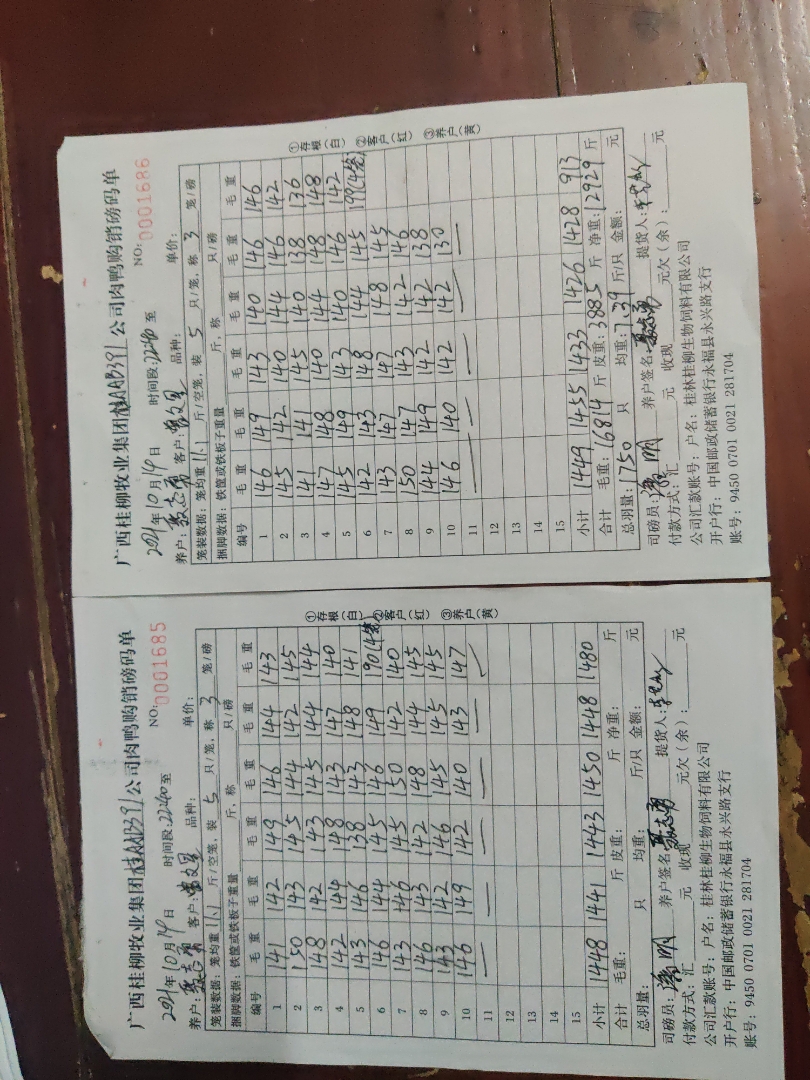 广西桂柳牧业集团桂AAB391公司肉鸭购销磅码单
NO: 0001685
2021年10月14日 时间段:22:40至
养户: 客户: 品种: 单价:
笼装数据: 笼均重 11.1 斤/空笼, 装 5 只/笼, 称 3 笼/磅
捆脚数据: 铁筐或铁板子重量 斤, 称 只/磅
编号 毛重 毛重 毛重 毛重 毛重 毛重
1 141 142 149 146 144 143
2 150 143 145 144 142 145
3 148 142 143 145 144 144
4 142 144 148 143 147 140
5 143 146 138 143 148 141
6 146 144 145 146 149 190(4笼)
7 143 146 145 150 142 140
8 146 143 142 148 144 145
9 143 142 146 145 145 145
10 146 149 142 140 143 147
11
12
13
14
15
小计 1448 1441 1443 1450 1448 1480
合计 毛重: 斤 皮重: 斤 净重: 斤
总羽量: 只 均重: 斤/只 金额: 元
司磅员: 养户签名: 提货人:
付款方式: 汇 元 收现 元欠(余): 元
公司汇款账号: 户名: 桂林桂柳生物饲料有限公司
开户行: 中国邮政储蓄银行永福县永兴路支行
账号: 9450 0701 0021 281704
①存根(白) ②客户(红) ③养户(黄)
广西桂柳牧业集团桂AAB391公司肉鸭购销磅码单
NO: 0001686
2021年10月14日 时间段:22:40至
养户: 客户: 品种: 单价:
笼装数据: 笼均重 11.1 斤/空笼, 装 5 只/笼, 称 3 笼/磅
捆脚数据: 铁筐或铁板子重量 斤, 称 只/磅
编号 毛重 毛重 毛重 毛重 毛重 毛重
1 146 149 143 140 146 146
2 145 142 140 144 146 142
3 141 141 145 140 138 136
4 147 148 140 144 148 148
5 145 149 143 140 146 142
6 142 143 148 144 145 199(4笼)
7 143 147 147 148 145
8 150 147 143 142 146
9 144 149 142 142 138
10 146 140 142 142 130
11
12
13
14
15
小计 1449 1455 1433 1426 1428 913
合计 毛重: 16814 斤 皮重: 3885 斤 净重: 12929 斤
总羽量: 1750 只 均重: 7.39 斤/只 金额: 元
司磅员: 养户签名: 提货人:
付款方式: 汇 元 收现 元欠(余): 元
公司汇款账号: 户名: 桂林桂柳生物饲料有限公司
开户行: 中国邮政储蓄银行永福县永兴路支行
账号: 9450 0701 0021 281704
①存根(白) ②客户(红) ③养户(黄)